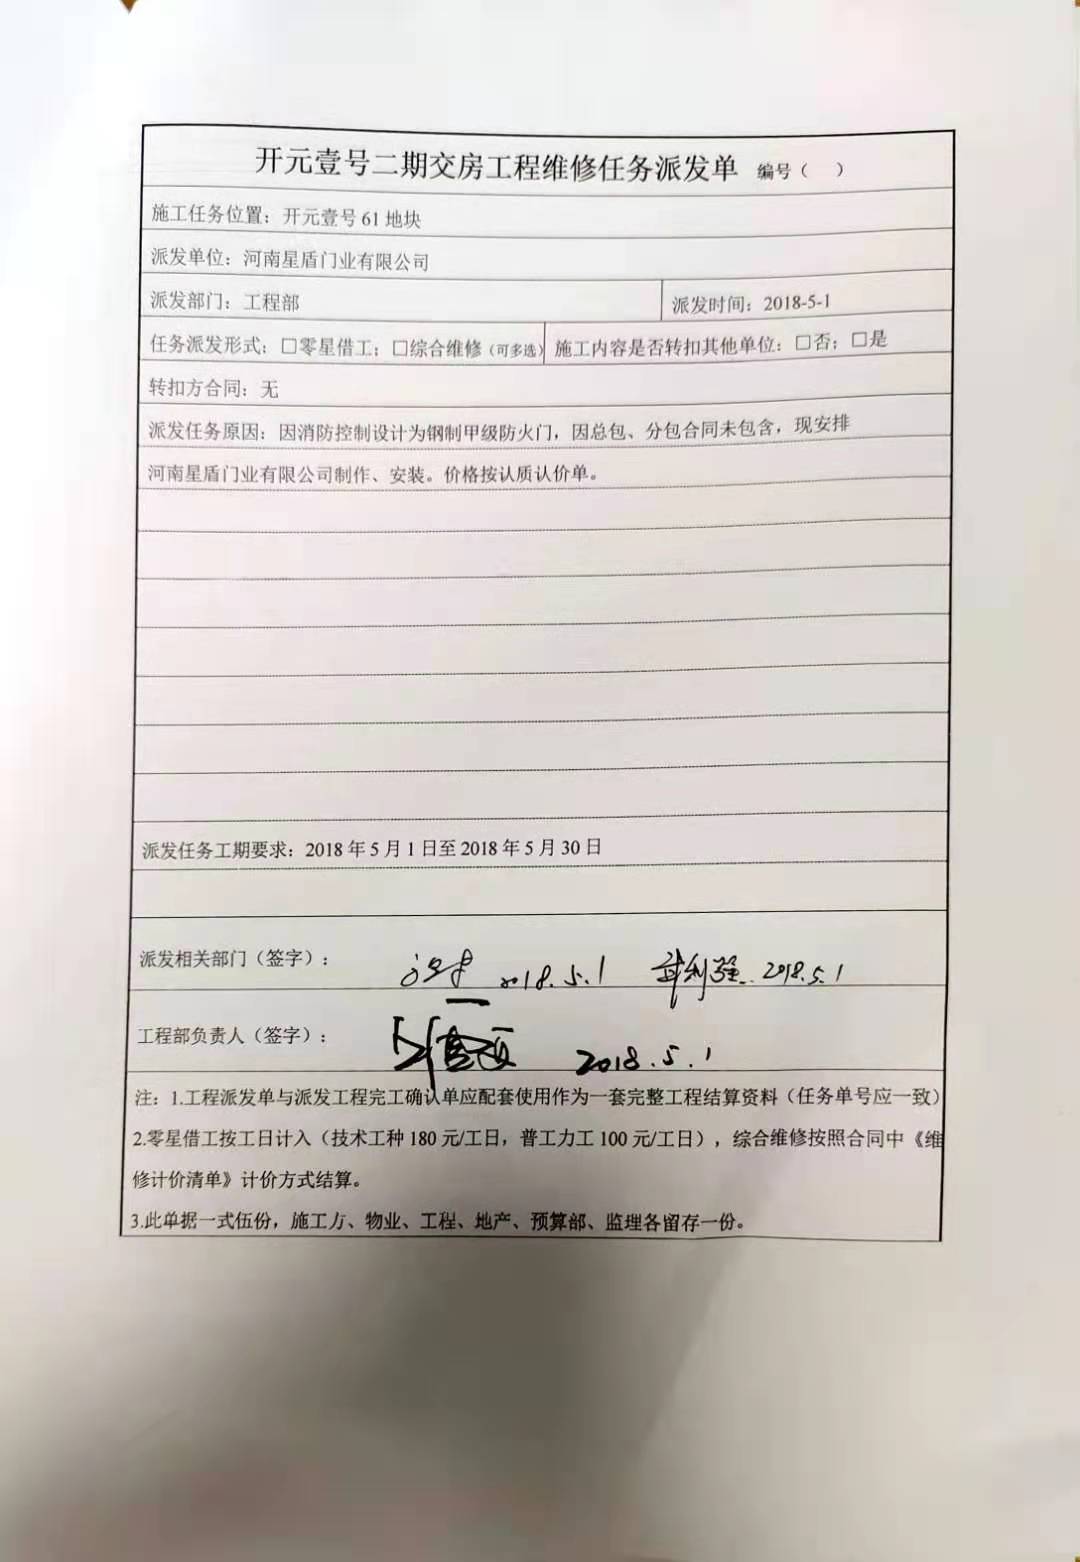 开元壹号二期交房工程维修任务派发单 编号（ ）
施工任务位置：开元壹号61地块
派发单位：河南星盾门业有限公司
派发部门：工程部 派发时间：2018-5-1
任务派发形式：□零星借工；□综合维修（可多选） 施工内容是否转扣其他单位：□否；□是
转扣方合同：无
派发任务原因：因消防控制设计为钢制甲级防火门，因总包、分包合同未包含，现安排
河南星盾门业有限公司制作、安装。价格按认质认价单。
派发任务工期要求：2018年5月1日至2018年5月30日
派发相关部门（签字）： 2018.5.1 2018.5.1
工程部负责人（签字）： 2018.5.1
注：1.工程派发单与派发工程完工确认单应配套使用作为一套完整工程结算资料（任务单号应一致）
2.零星借工按工日计入（技术工种180元/工日，普工力工100元/工日），综合维修按照合同中《维
修计价清单》计价方式结算。
3.此单据一式伍份，施工方、物业、工程、地产、预算部、监理各留存一份。